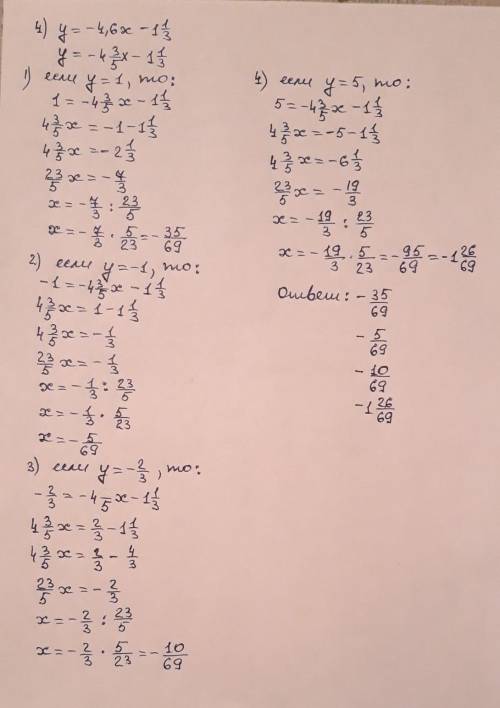 4) y = -4,6x - 1 1/3
y = -4 3/5 x - 1 1/3
1) если y = 1, то:
1 = -4 3/5 x - 1 1/3
4 3/5 x = -1 - 1 1/3
4 3/5 x = -2 1/3
23/5 x = -7/3
x = -7/3 : 23/5
x = -7/3 · 5/23 = -35/69
2) если y = -1, то:
-1 = -4 3/5 x - 1 1/3
4 3/5 x = 1 - 1 1/3
4 3/5 x = -1/3
23/5 x = -1/3
x = -1/3 : 23/5
x = -1/3 · 5/23
x = -5/69
3) если y = -2/3, то:
-2/3 = -4 /5 x - 1 1/3
4 3/5 x = 2/3 - 1 1/3
4 3/5 x = 2/3 - 4/3
23/5 x = -2/3
x = -2/3 : 23/5
x = -2/3 · 5/23 = -10/69
4) если y = 5, то:
5 = -4 3/5 x - 1 1/3
4 3/5 x = -5 - 1 1/3
4 3/5 x = -6 1/3
23/5 x = -19/3
x = -19/3 : 23/5
x = -19/3 · 5/23 = -95/69 = -1 26/69
Ответ: -35/69
-5/69
-10/69
-1 26/69